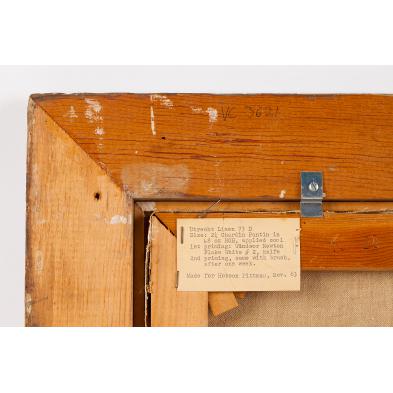 VC 3621
Utrecht Linen 73 D
Size: 2½ Chardin Pontin in
48 oz H2O, applied cool
1st priming: Windsor Newton
Flake White # 2, knife
2nd priming, same with brush,
after one week.
Made for Hobson Pittman, Nov. 63